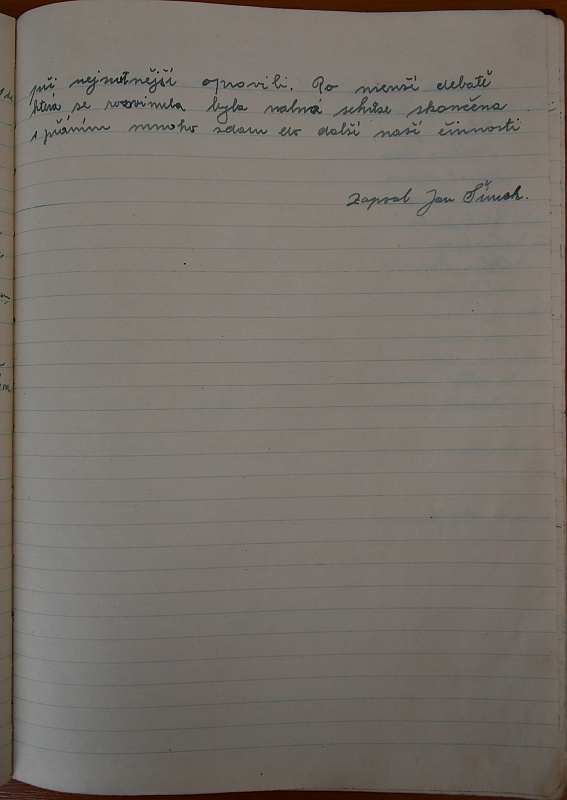 při nejnutnější opravili. Po menší debatě
která se rozvinula byla valná schůze skončena
s přáním mnoho zdaru do další naší činnosti
Zapsal Jan Šimek.